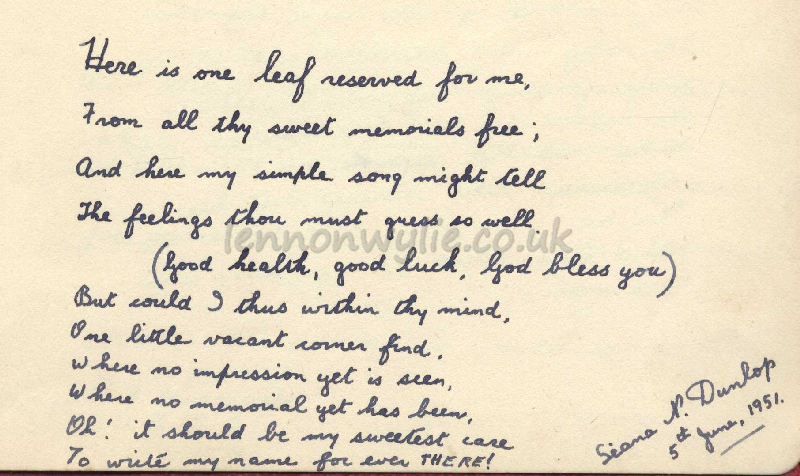 Here is one leaf reserved for me,
From all thy sweet memorials free;
And here my simple song might tell
The feelings thou must guess so well.
lennonwylie.co.uk
(Good health, good luck, God bless you)
But could I thus within thy mind,
One little vacant corner find,
Where no impression yet is seen,
Where no memorial yet has been,
Oh! it should be my sweetest care
To write my name for ever THERE!
Seana N. Dunlop
5th June, 1951.